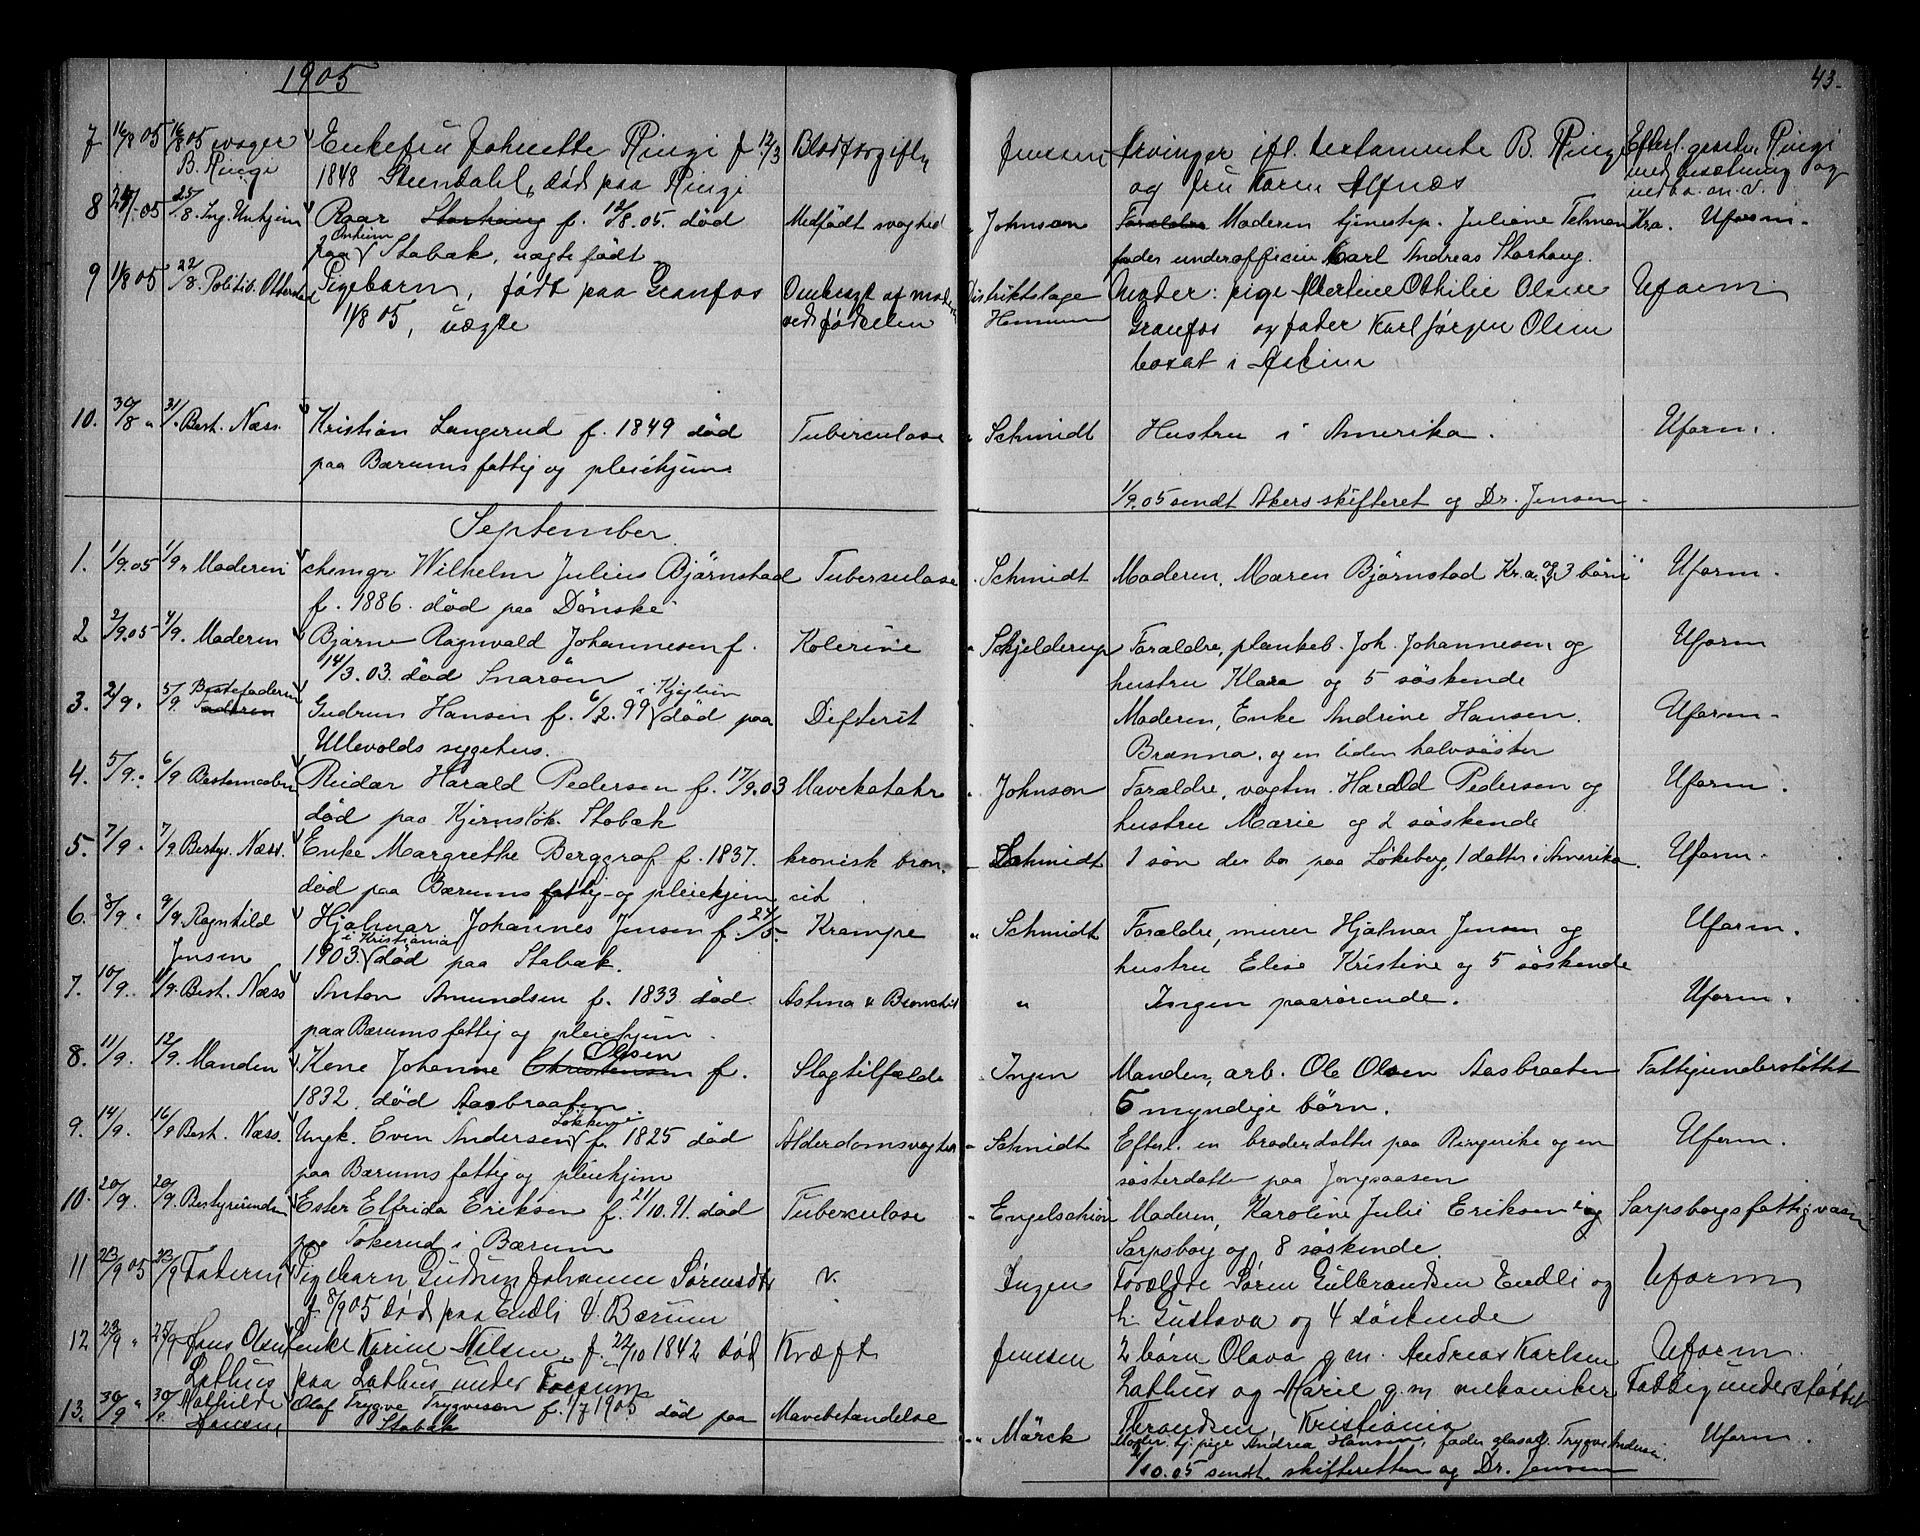 1905
43.
7 16/8 05 16/8 05 svoger Enkefru Johnette Ringi f 12/3 Blodforgiftn Jenssen Arvinger ifl. testamente B. Ringi Efterl. gaarden Ringi
B. Ringi 1848 Steendahl, død paa Ringi og fru Karen Alfnæs med besætning og
8 24/8 05 25/8. Ing. Unhjem Roar Storhaug f. 12/8.05. død Medfødt svaghed " Johnson Forældre Moderen tjenestep. Juliane Telman Kra. Uform.
paa Stabæk, uægte født fader underofficer Karl Andreas Storhaug.
9 11/8 05 22/8. Politib. Pigebarn, født paa Granfos Ombragt af moderen Distriktslæge Moder: pige Martine Othilie Olsen Uform.
11/8 05, uægte ved fødselen Granfos og fader Karl Jørgen Olsen
bosat i Askim
10. 30/8 " 31/8. Best. Næss. Kristian Langerud f. 1849 død Tuberculose " Schmidt Hustru i Amerika. Uform.
paa Bærums fattig og pleiehjem
1/9.05 sendt Akers skifteret og Dr. Jensen
September.
1. 1/9.05 1/9. Moderen Wilhelm Julius Bjørnstad Tuberculose " Schmidt Moderen, Maren Bjørnstad Kr.a. og 3 børn Uform.
f. 1886. død paa Dønske
2 2/9.05 4/9. Moderen Bjarne Ragnvald Johannesen f. Kolerine " Schjelderup Forældre, plankeb. Joh. Johannesen og Uform
14/3.03. død Snarøen hustru Klara og 5 søskende
3. 2/9 " 5/9 Bestefaderen Faderen Gudrun Hansen f. 6/2.99 død paa Difterit " Moderen, Enke Andrine Hansen. Uform.
Ullevolds sygehus. Brænna, og en liden halvsøster
4. 5/9. " 6/9 Bestemoderen Reidar Harald Pedersen f. 17/9.03 Mavekatahr " Johnson Forældre, vogtm. Harald Pedersen og Uform.
død paa Stabæk hustru Marie og 2 søskende
5. 7/9 " 7/9 Bestyr. Næss. Enke Margrethe Berggraf f. 1837. kronisk bron. " Schmidt 1 søn der bor paa Løkeberg, 1 datter i Amerika. Uform.
død paa Bærums fattig- og pleiehjem cit
6. 8/9 " 9/9 Ragnhild Hjalmar Johannes Jensen f. 24/5. Krampe " Schmidt Forældre, murer Hjalmar Jensen og Uform.
Jensen 1903. i Kristiania død paa Stabæk. hustru Elise Kristine og 5 søskende
7. 10/9. 11/9. Best. Næss Anton Amundsen f. 1833 død Astma & Bronchit " Ingen paarørende. Uform.
paa Bærums fattig og pleiehjem.
8. 11/9. 12/9. Manden Kone Johanne Christensen Olsen f. Slagtilfælde " Ingen Manden, arb. Ole Olsen Aasbraaten Fattigunderstøttet
1832. død Aasbraaten. 5 myndige børn.
9. 14/9. 16/9 Best. Næss. Ungk. Even Andersen Løkken f. 1825 død Alderdomsvaghed " Schmidt Efterl. en broderdatter paa Ringerike og en Uform.
paa Bærums fattig og pleiehjem søsterdatter paa Jongsaasen
10. 20/9. 20/9. Bestyrerinden Ester Elfrida Eriksen f. 21/10.91. død Tuberculose " Engelschiøn Moderen, Karoline Julie Eriksen Sarpsborgs fattigvæsen
paa Tokerud i Bærum Sarpsborg og 8 søskende.
11 23/9 05 23/9 Faderen Pigebarn Gudrun Johanne Sørensdtr v. Ingen Forældre Søren Gulbrandsen Endli og Uform
f. 8/9 05 død paa Endli V. Bærum h. Gustava og 4 søskende
12 23/9 " 25/9 Hans Olsen Enke Karine Nilsen f. 22/10 1842 død Kræft Jenssen 2 børn Olava g.m. Andreas Karlsen Uform.
Lathus paa Lathus under Fossum Lathus og Marie g.m. mekaniker Fattigunderstøttet
13. 30/9 " 30/9. Mathilde Olaf Trygve Trygvesen f. 1/7 1905 død paa Mavebetændelse " Mörck Thrandsen, Kristiania
Hansen Stabæk Moder tj.pige Andrea Hansen, fader Trygve Andersen. Uform.
2/10.05 sendt skifteretten og Dr. Jensen